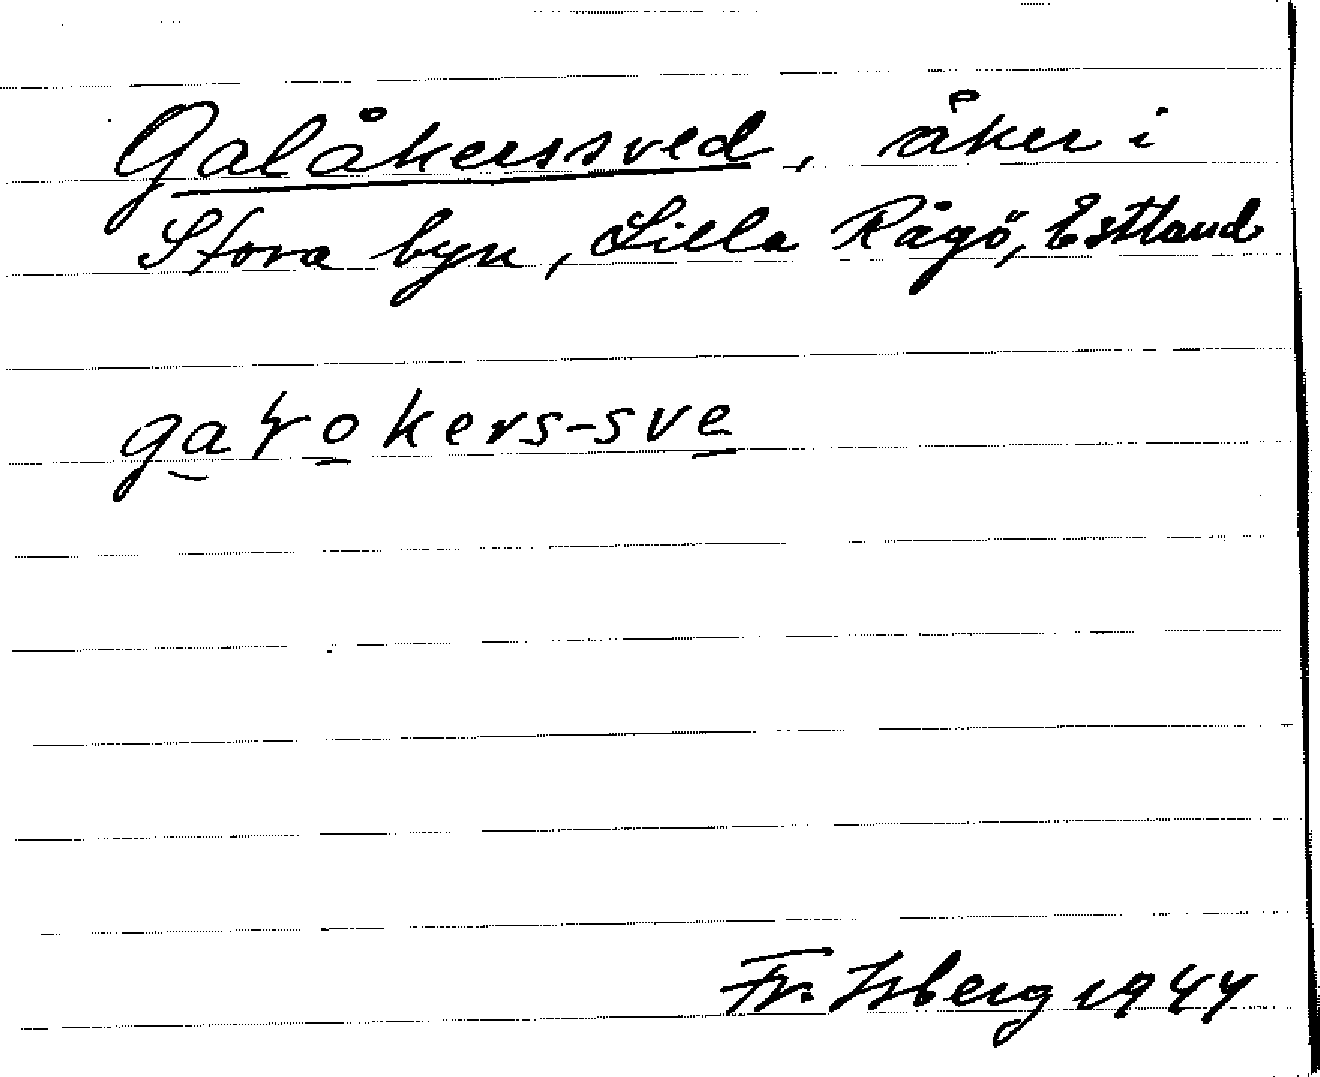 Galåkerssved, åker i
Stora byn, Lilla Rågö, Estland
gaɽokers-sve
Fr. Isberg 1944